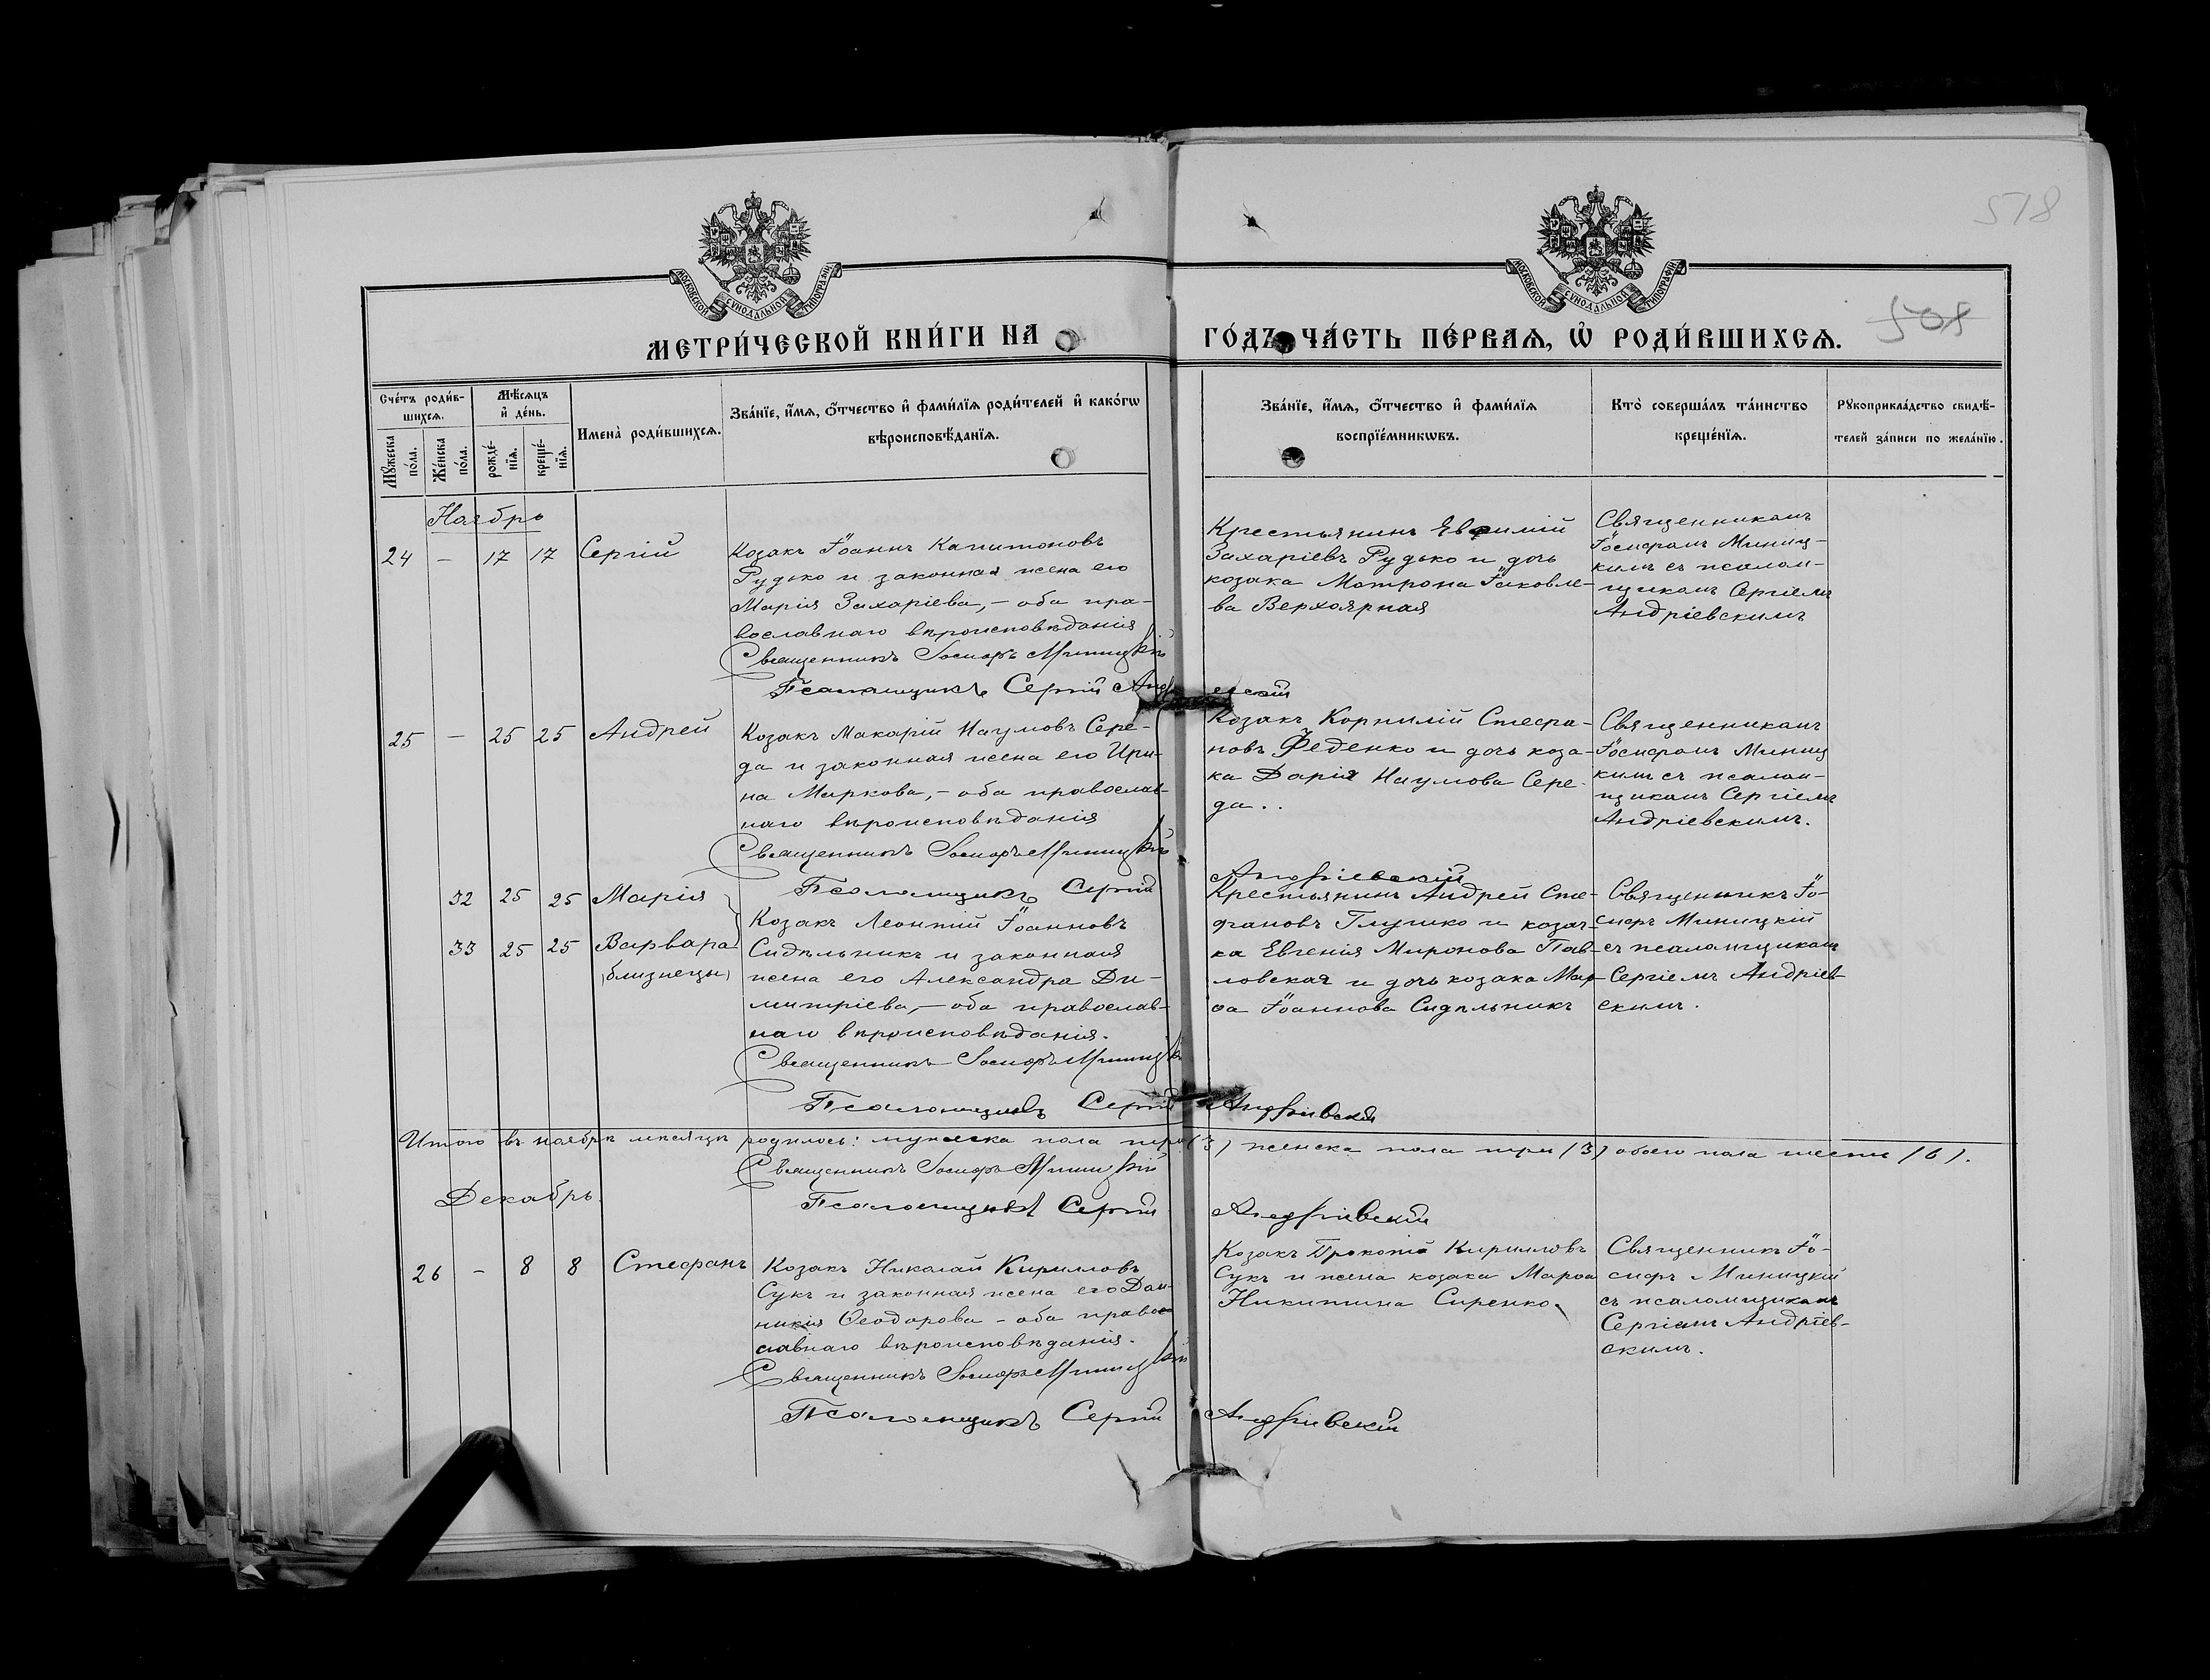 518
508
МОСКОВСКОЙ СѴНОДАЛЬНОЙ ТИПОГРАФІИ
МОСКОВСКОЙ СѴНОДАЛЬНОЙ ТИПОГРАФІИ
МЕТРИ́ЧЕСКОЙ КНИ́ГИ НА
ГО́ДЪ ЧА́СТЬ ПЕ́РВАѦ, Ѡ҆ РОДИ́ВШИХСѦ.
Сче́тъ роди́в-
шихсѧ.
Мꙋ́жеска по́ла.
Же́нска по́ла.
Мѣ́сѧцъ
и҆ де́нь.
рожде́-
нїѧ.
креще́-
нїѧ.
Имена̀ роди́вшихсѧ.
Зва́нїе, и҆́мѧ, ѻ҆́тчество и҆ фами́лїѧ роди́телей и҆ како́гѡ
вѣроисповѣ́данїѧ.
Зва́нїе, и҆́мѧ, ѻ҆́тчество и҆ фами́лїѧ
воспрїе́мникѡвъ.
Кто̀ соверша́лъ та́инство
креще́нїѧ.
Рꙋкоприкла́дство свидѣ́-
телей за́писи по жела́нїю.
Ноябрь
24 – 17 17 Сергій
Козакъ Іоаннъ Капитоновъ
Рудько и законная жена его
Марія Захаріева, – оба пра-
вославнаго вѣроисповѣданія
Священникъ Іосифъ Миницкій
Псаломщикъ Сергій Андріевскій
Крестьянинъ Евфимій
Захаріевъ Рудько и дочь
козака Матрона Іаковле-
ва Верхоярная
Священникомъ
Іосифомъ Миниц-
кимъ съ псалом-
щикомъ Сергіемъ
Андріевскимъ
25 – 25 25 Андрей
Козакъ Макарій Наумовъ Сере-
да и законная жена его Ири-
на Маркова, – оба православ-
наго вѣроисповѣданія
Священникъ Іосифъ Миницкій
Псаломщикъ Сергій Андріевскій
Козакъ Корнилій Стефа-
новъ Феденко и дочь коза-
ка Дарія Наумова Сере-
да..
Священникомъ
Іосифомъ Миниц
кимъ съ псалом-
щикомъ Сергіемъ
Андріевскимъ.
32 25 25 Марія
33 25 25 Варвара
(близнецы)
Козакъ Леонтій Іоанновъ
Сидѣльникъ и законная
жена его Александра Ди-
митріева, – оба православ-
наго вѣроисповѣданія.
Священникъ Іосифъ Миницкій
Псаломщикъ Сергій Андріевскій
Крестьянинъ Андрей Сте-
фановъ Глушко и козач-
ка Евгенія Миронова Пав-
ловская и дочь козака Мар-
ѳа Іоаннова Сидѣльникъ
Священникъ Іо-
сифъ Миницкій
съ псаломщикомъ
Сергіемъ Андріев-
скимъ.
Итого въ ноябрѣ мѣсяцѣ родилось: мужеска пола три (3) женска пола три (3) обоего пола шесть (6).
Священникъ Іосифъ Миницкій
Псаломщикъ Сергій Андріевскій
Декабрь.
26 – 8 8 Стефанъ
Козакъ Николай Кирилловъ
Сукъ и законная жена его Дом-
никія Ѳеодорова – оба право-
славнаго вѣроисповѣданія.
Священникъ Іосифъ Миницкій
Псаломщикъ Сергій Андріевскій
Козакъ Прокопій Кирилловъ
Сукъ и жена козака Марѳа
Никитина Сиренко.
Священникъ Іо-
сифъ Миницкій
съ псаломщикомъ
Сергіемъ Андріев-
скимъ.